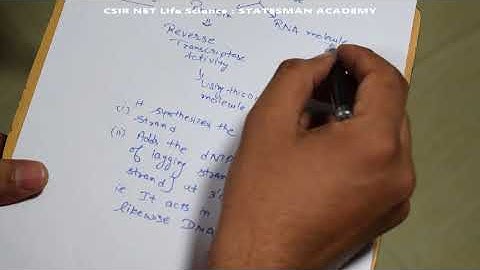 CSIR NET Life Science : STATESMAN ACADEMY
RNA molecule
Reverse
Transcriptase
Activity
Using this
molecule
i) It synthesizes the
strand
(ii) Adds the dNTP
of lagging stran
strand} at 3'
i.e. It acts in
likewise DNA